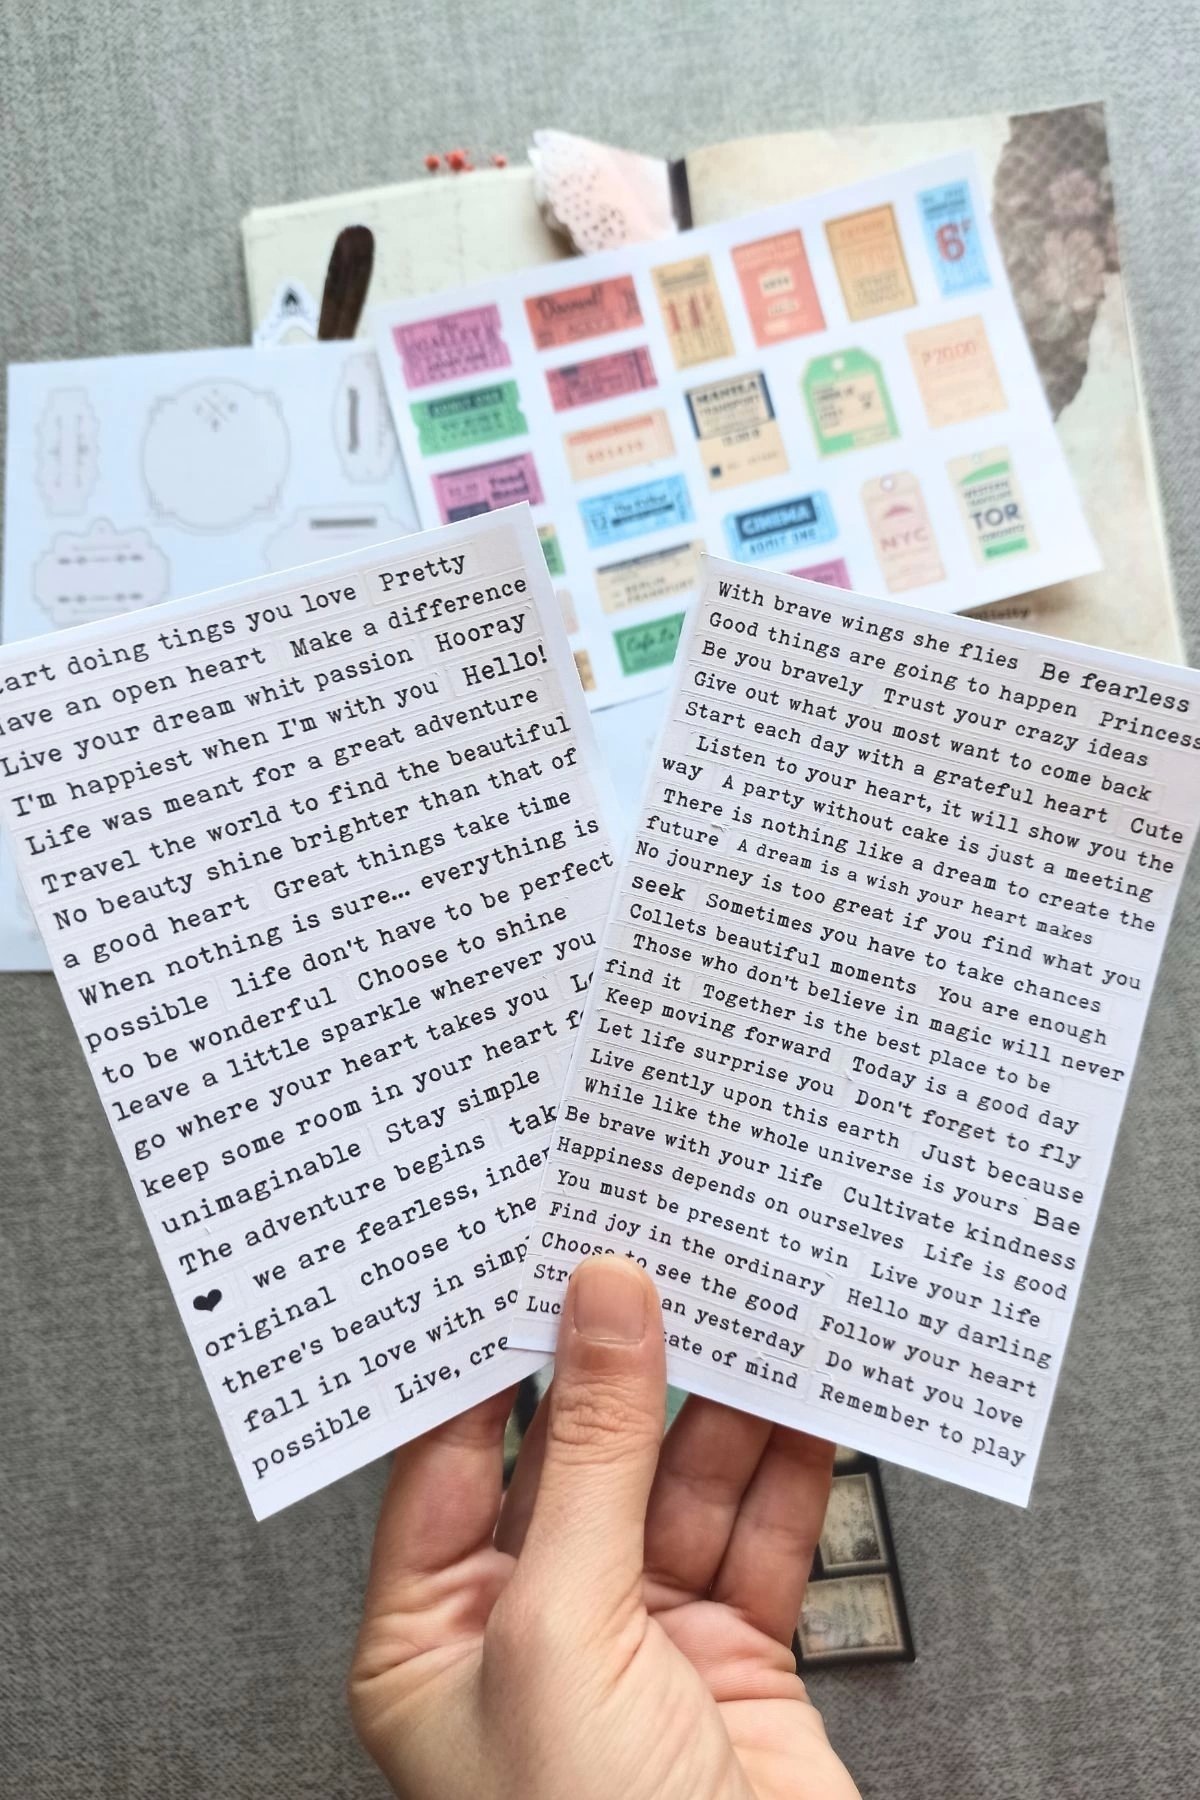 doing tings you love Pretty
an open heart Make a difference
Live your dream whit passion Hooray
I'm happiest when I'm with you Hello!
Life was meant for a great adventure
Travel the world to find the beautiful
No beauty shine brighter than that of
a good heart Great things take time
When nothing is sure... everything is
possible life don't have to be perfect
to be wonderful Choose to shine
leave a little sparkle wherever you
go where your heart takes you
keep some room in your heart
unimaginable Stay simple
The adventure begins
❤ we are fearless,
original choose to the
there's beauty in
fall in love with
possible Live,
With brave wings she flies Be fearless
Good things are going to happen Princess
Be you bravely Trust your crazy ideas
Give out what you most want to come back
Start each day with a grateful heart Cute
Listen to your heart, it will show you the
way A party without cake is just a meeting
There is nothing like a dream to create the
future A dream is a wish your heart makes
No journey is too great if you find what you
seek Sometimes you have to take chances
Collets beautiful moments You are enough
Those who don't believe in magic will never
find it Together is the best place to be
Keep moving forward Today is a good day
Let life surprise you Don't forget to fly
Live gently upon this earth Just because
While like the whole universe is yours Bae
Be brave with your life Cultivate kindness
Happiness depends on ourselves Life is good
You must be present to win Live your life
Find joy in the ordinary Hello my darling
Choose to see the good Follow your heart
yesterday Do what you love
of mind Remember to play
MANILA
TRANSPORT
P20.00
CINEMA
ADMIT ONE
NYC
TOR
TORONTO
BERLIN
FRANKFURT